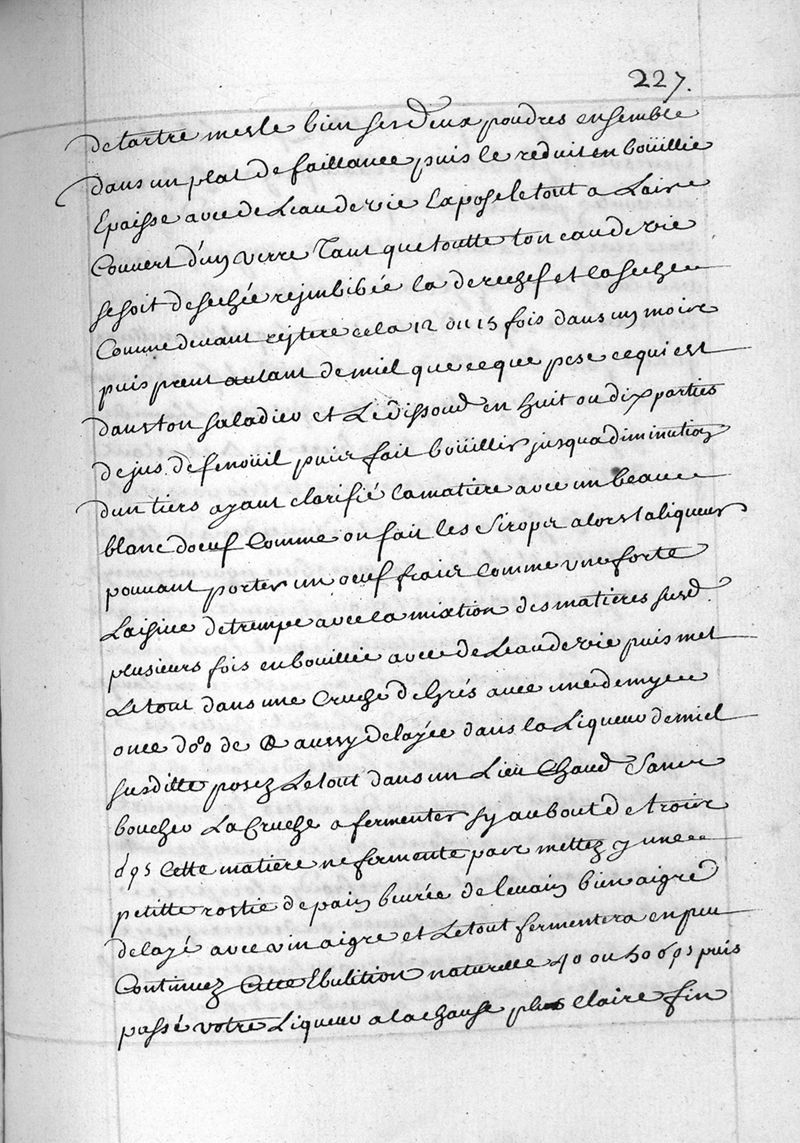 227.
de tartre mesle bien ses deux poudres ensemble
dans un plat de faillance puis le reduit en boüillie
Epaisse avec de Leau de vie Expose le tout a Laire
Couvert d'un verre Tant que toutte ton eau de vie
se soit desechée rejmbibée la derechef et la seche
Comme devant reïtere cela 12 ou 15 fois dans un moire
puis prent autant de miel que ce que pese ce qui est
dans ton saladier et Le dissoud en huit ou dix parties
de jus de fenoüil puis fait boüillir jusqua diminution
dun tiers ayant clarifié la matiere avec un beau
blanc doeuf Comme on fait les Sirops alors ta liqueur
pouvant porter un oeuf frais Comme une forte
Laisive detrempe avec la mixtion des matieres susd.
plusieurs fois en bouillie avec de Leau de vie puis met
Le tout dans une Cruche de Grés avec une demye
once de de aussy delayée dans la Liqueur de miel
susditte posez Le tout dans un Lieu Chaud Sans
boucher La Cruche a fermenter sy au bout de trois
Cette matiere ne fermente pas mettez y une
petitte rostie de pain beurée de levain bien aigre
delayé avec vinaigre et Le tout fermentera en peu
Continuez Cette Ebulition naturelle 40 ou 50 puis
passé votre Liqueur a la chause plus claire fin